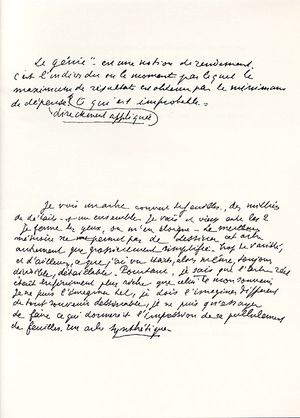 Le génie – est une notion de rendement.
C'est l'individu ou le moment par lequel le
maximum de résultats est obtenu par le minimum
de dépense. Ce qui est improbable.
directement appliquée
Je vois un arbre couvert de feuilles. des milliers
de détails + un ensemble. Je vais et viens entre les 2
Je ferme les yeux, ou m'en éloigne. Le meilleur
mémoire ne permet pas de dessiner cet arbre
autrement que grossièrement simplifié. trop
et d'ailleurs, ce que j'ai vu était, alors même, toujours
divisible, détachable. Pourtant, je sais que l'arbre réel
était infiniment plus riche que celui de mon souvenir
Je ne puis l'imaginer tel, je dois l'imaginer différent
de tout souvenir dessinable, je ne puis qu'essayer
de faire ce qui donnerait l'impression de ce pullulement
de feuilles. Un arbre synthétique.